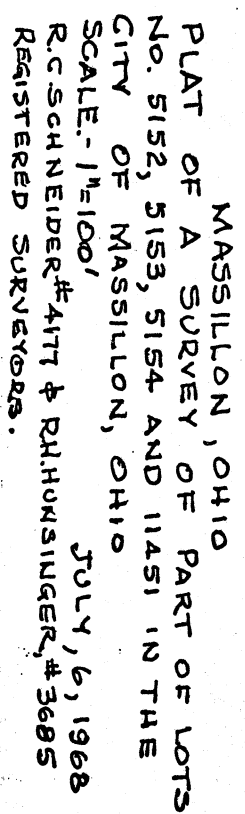 MASSILLON, OHIO
PLAT OF A SURVEY OF PART OF LOTS
NO. 5152, 5153, 5154 AND 11451 IN THE
CITY OF MASSILLON, OHIO
SCALE.- 1"=100' JULY, 6, 1968
R.C. SCHNEIDER #4177 & R.H. HUNSINGER, #3685
REGISTERED SURVEYORS.